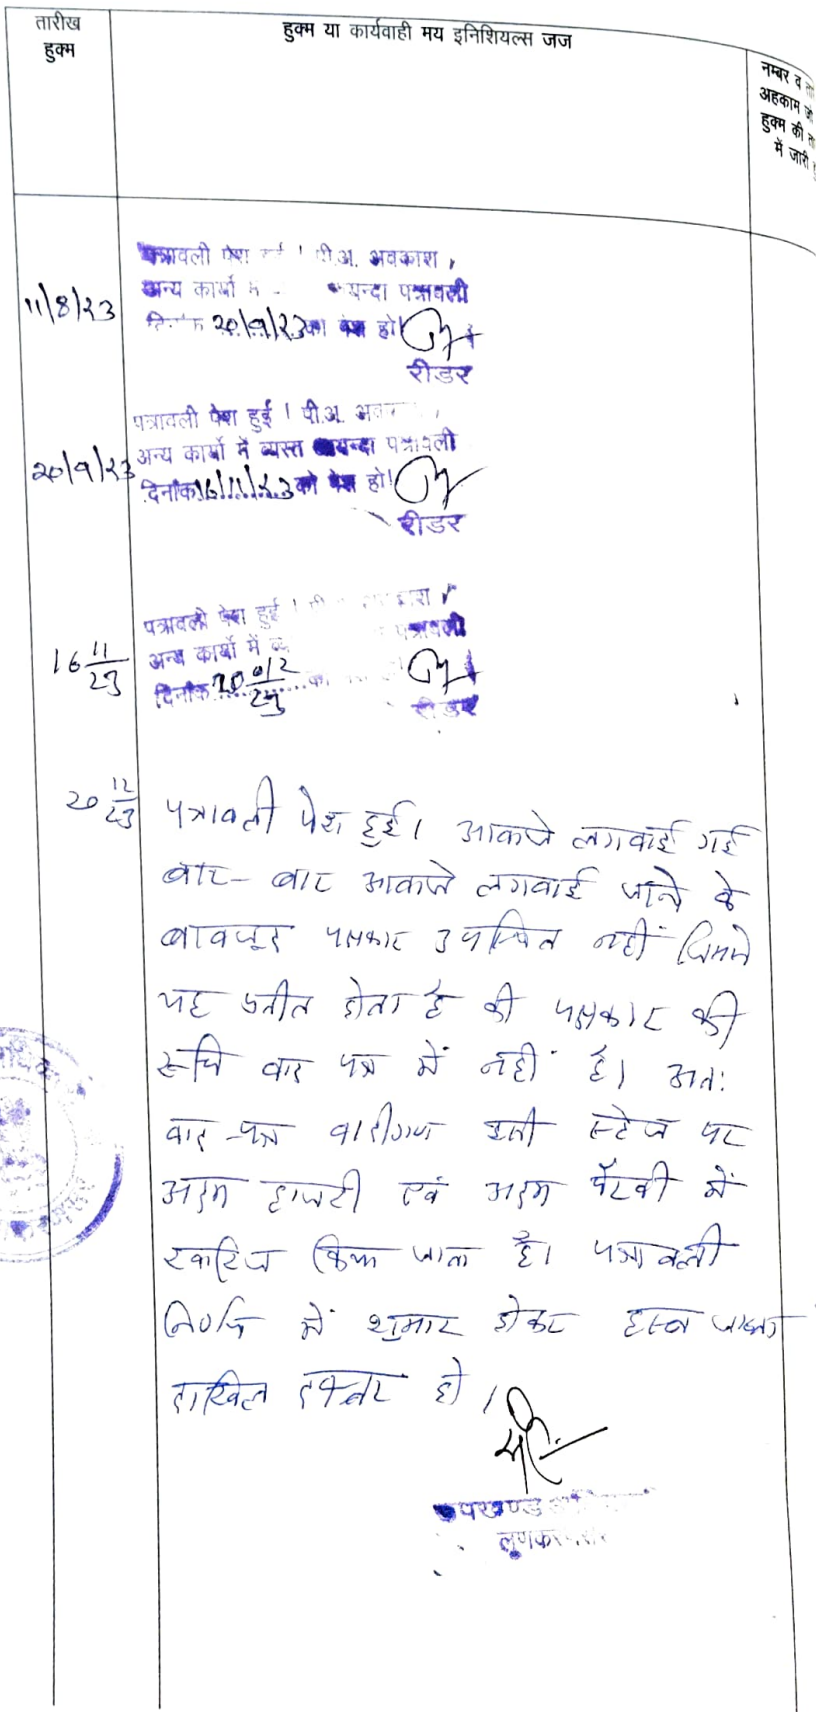 तारीख
हुक्म
हुक्म या कार्यवाही मय इनिशियल्स जज
नम्बर व
अहकाम जो
हुक्म की
में जारी
पत्रावली पेश हुई । पी.अ. अवकाश,
अन्य कार्यो में आयन्दा पत्रावली
11/8/23
दिनांक 20/9/23 का पेश हो।
रीडर
पत्रावली पेश हुई । पी.अ.
अन्य कार्यो में व्यस्त आयन्दा पत्रावली
20/9/23
दिनांक 16/11/23 को पेश हो।
रीडर
पत्रावली पेश हुई ।
अन्य कार्यो में पत्रावली
16 11/23
दिनांक 20 12/23
रीडर
20 12/23
पत्रावली पेश हुई। आवाजे लगवाई गई
बार-बार आवाजे लगवाई जाने के
बावजूद पक्षकार उपस्थित नहीं जिससे
यह प्रतीत होता है की पक्षकार की
रूचि वाद पत्र में नहीं है। अतः
वाद-पत्र वादीगण इसी स्टेज पर
अदम हाजरी एवं अदम पैरवी में
खारिज किया जाता है। पत्रावली
निर्णित में शुमार होकर
दाखिल दफ्तर हो।
उपखण्ड
लूणकरनसर